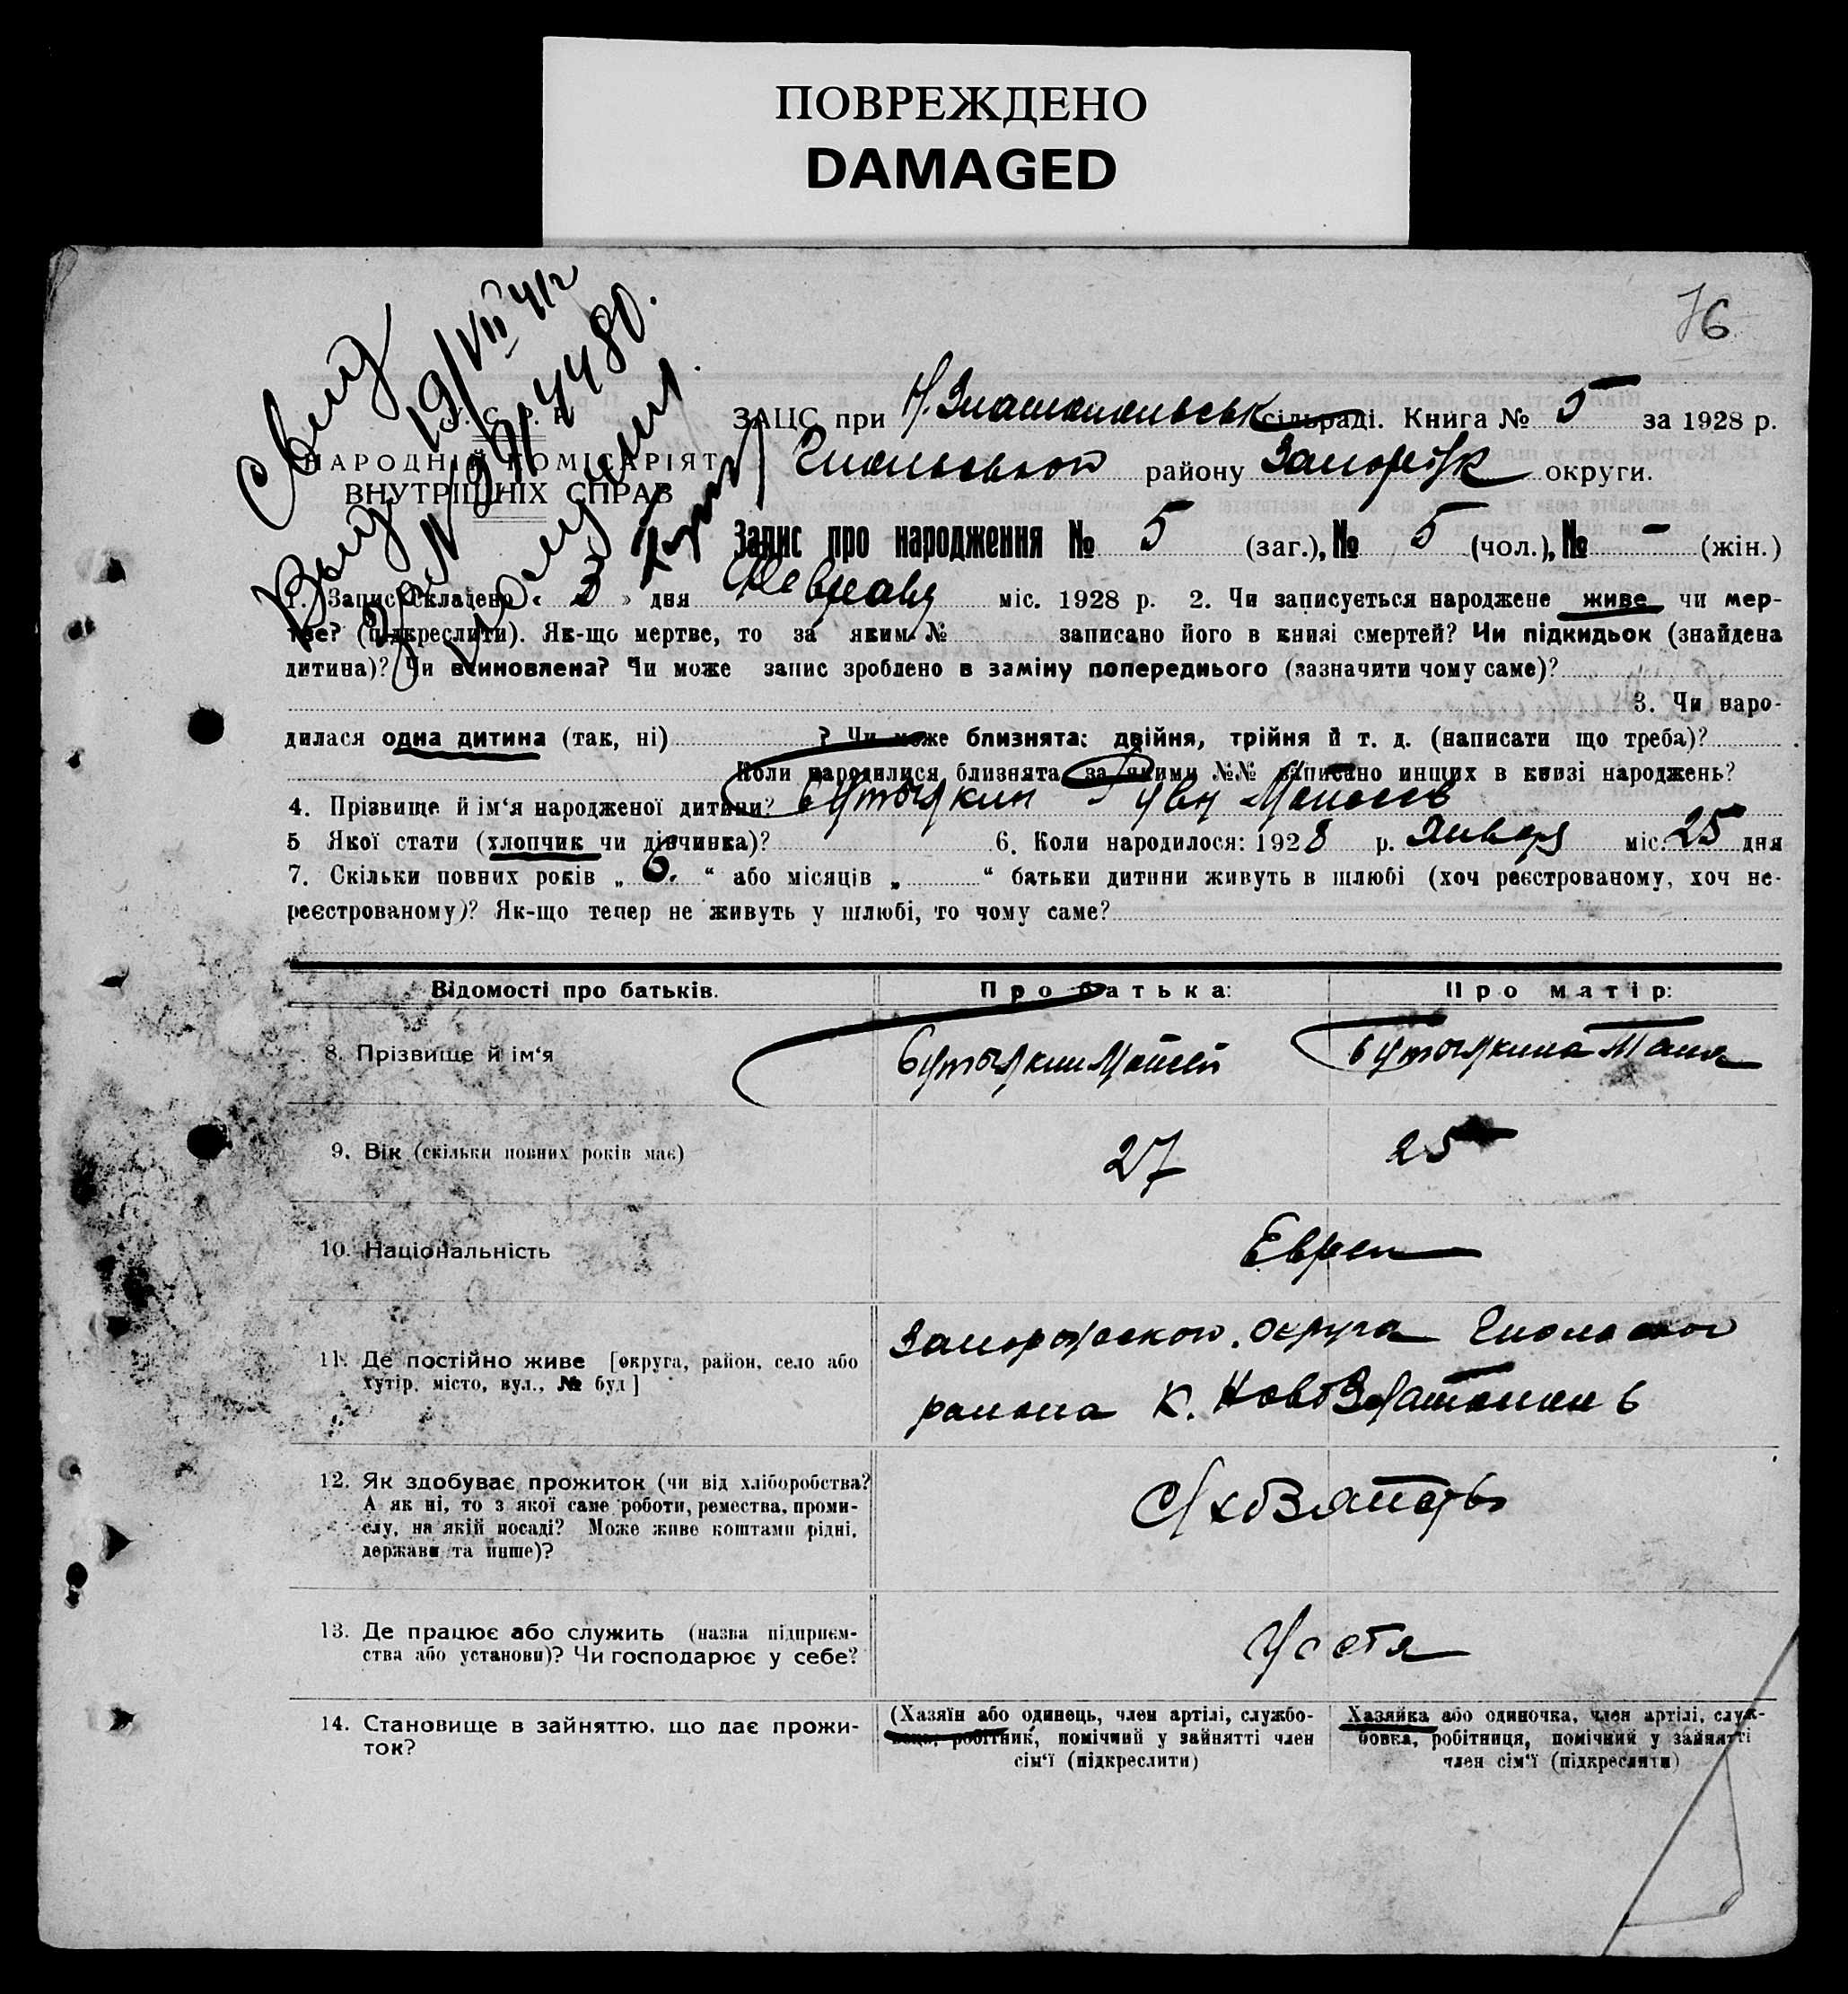 ПОВРЕЖДЕНО
DAMAGED
76
Свид
19/VII 41г
У. С. Р. Р.
НАРОДНІЙ КОМІСАРІЯТ
ВНУТРІШНІХ СПРАВ
ЗАЦС при сільраді. Книга № 5 за 1928 р.
району округи.
Запис про народження № 5 (заг.), № 5 (чол.), № - (жін.)
1. Запис складено « 3 » дня Февраля міс. 1928 р. 2. Чи записується народжене живе чи мер-
тве? (підкреслити). Як-що мертве, то за яким № записано його в книзі смертей? Чи підкидьок (знайдена
дитина)? Чи всиновлена? Чи може запис зроблено в заміну попереднього (зазначити чому саме)?
3. Чи наро-
дилася одна дитина (так, ні) ? Чи може близнята: двійня, трійня й т. д. (написати що треба)?
Коли народилися близнята, за якими №№ записано инших в книзі народжень?
4. Прізвище й ім‘я народженої дитини? Бутылкин
5 Якої стати (хлопчик чи дівчинка)? 6. Коли народилося: 1928 р. Января міс. 25 дня
7. Скільки повних років „ 6. “ або місяців „ “ батьки дитини живуть в шлюбі (хоч реєстрованому, хоч не-
реєстрованому)? Як-що тепер не живуть у шлюбі, то чому саме?
Відомості про батьків. Про батька: Про матір:
8. Прізвище й ім‘я Бутылкин Мойсей Бутылкина Маня
9. Вік (скільки повних років має) 27 25
10. Національність Евреи
11. Де постійно живе [округа, район, село або
хутір, місто, вул., № буд]
округа
района К.
12. Як здобуває прожиток (чи від хліборобства?
А як ні, то з якої саме роботи, ремества, проми-
слу, на якій посаді? Може живе коштами рідні,
держави та инше)?
13. Де працює або служить (назва підприєм-
ства або установи)? Чи господарює у себе?
14. Становище в зайняттю, що дає прожи-
ток?
(Хазяїн або одинець, член артілі, службо-
вець, робітник, помічний у зайнятті член
сім‘ї (підкреслити)
Хазяйка або одиночка, член артілі, служ-
бовка, робітниця, помічний у зайнятті
член сім‘ї (підкреслити)